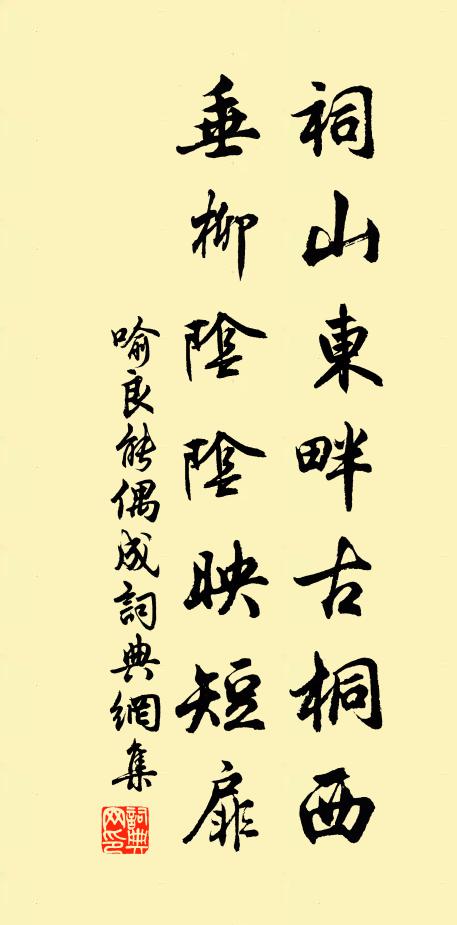 祠山東畔古桐西
垂柳陰陰映短扉
喻良能偶成詞典網集
詞典网印